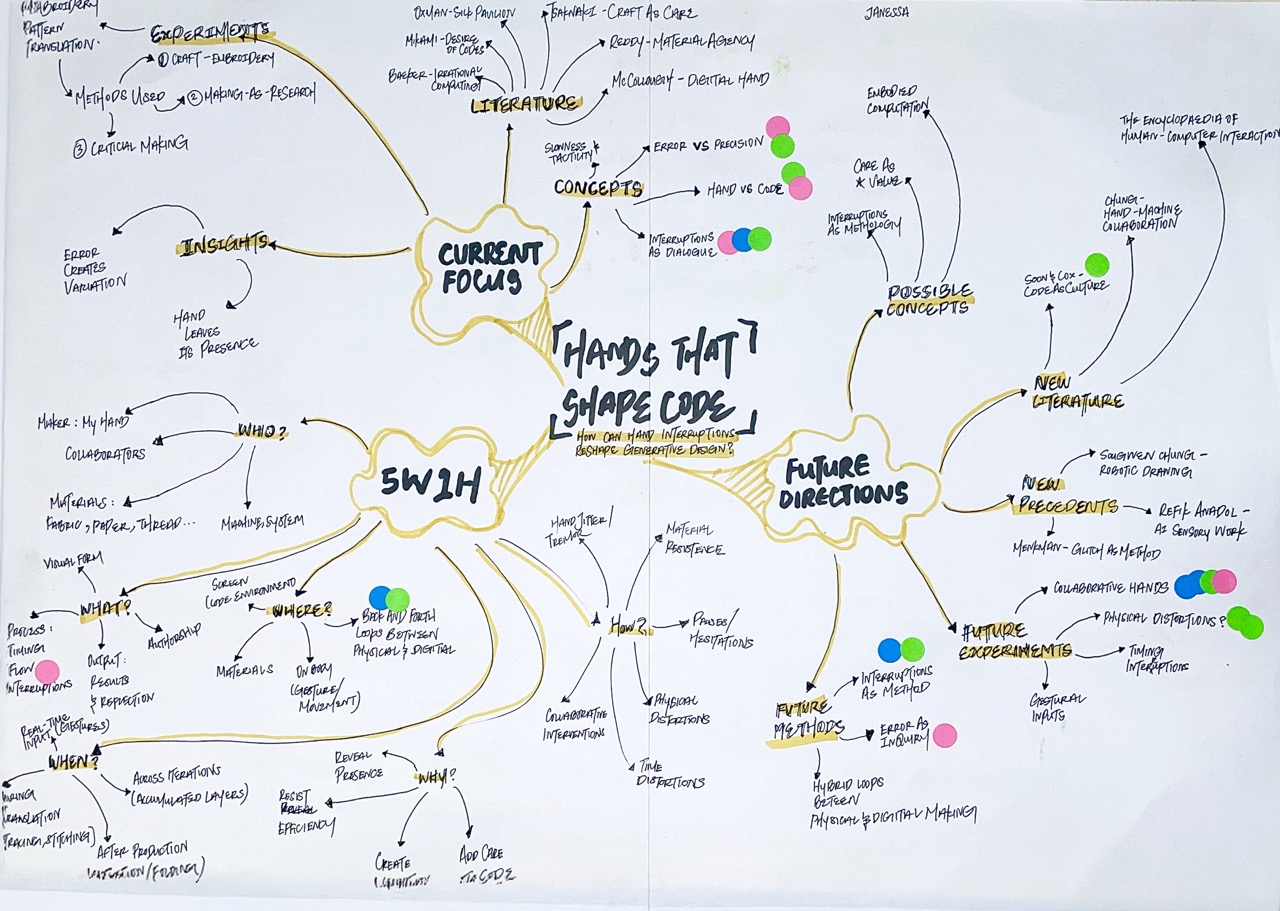 JANESSA
PATTERN
TRANSLATION.
EXPERIMENTS
① CRAFT-EMBROIDERY
METHODS USED
② MAKING-AS-RESEARCH
③ CRITICAL MAKING
OXMAN-SILK PAVILION
TSAKNAKI-CRAFT AS CARE
MIKAMI-DESIRE
OF CODES
REDDY-MATERIAL AGENCY
BAEKER-IRRATIONAL
COMPUTING
MCCOLLOUGH-DIGITAL HAND
LITERATURE
SLOWNESS &
TACTILITY
ERROR VS PRECISION
CONCEPTS
HAND VS CODE
INTERRUPTIONS
AS DIALOGUE
CURRENT
FOCUS
INSIGHTS
ERROR
CREATES
VARIATION
HAND
LEAVES
ITS PRESENCE
HANDS THAT
SHAPE CODE
HOW CAN HAND INTERRUPTIONS
RESHAPE GENERATIVE DESIGN?
5W1H
WHO?
MAKER: MY HAND
COLLABORATORS
MATERIALS:
FABRIC, PAPER, THREAD...
MACHINE, SYSTEM
WHAT?
VISUAL FORM
PROCESS:
TIMING
FLOW
INTERRUPTIONS
OUTPUT:
RESULTS
& REFLECTION
AUTHORSHIP
WHERE?
SCREEN
(CODE ENVIRONMENT)
MATERIALS
ON BODY
(GESTURE/
MOVEMENT)
BACK AND FORTH
LOOPS BETWEEN
PHYSICAL & DIGITAL
WHEN?
REAL-TIME
INPUT (GESTURES)
TRACING, STITCHING)
ACROSS ITERATIONS
(ACCUMULATED LAYERS)
AFTER PRODUCTION
WHY?
REVEAL
PRESENCE
RESIST
EFICIENCY
CREATE
ADD CARE
TO CODE
HOW?
HAND JITTER/
TREMOR
MATERIAL
RESISTENCE
PAUSES/
HESITATIONS
PHYSICAL
DISTORTIONS
TIME
DISTORTIONS
COLLABORATIVE
INTERVENTIONS
FUTURE
DIRECTIONS
POSSIBLE
CONCEPTS
INTERRUPTIONS
AS METHOLOGY
CARE AS
VALUE
EMBODIED
COMPUTATION
NEW
LITERATURE
SOON & COX-
CODE AS CULTURE
CHUNG-
HAND-MACHINE
COLLABORATION
THE ENCYCLOPAEDIA OF
HUMAN-COMPUTER INTERACTION
NEW
PRECEDENTS
SOUGWEN CHUNG-
ROBOTIC DRAWING
REFIK ANADOL-
AI SENSORY WORK
MENKMAN-GLITCH AS METHOD
FUTURE
EXPERIMENTS
COLLABORATIVE HANDS
PHYSICAL DISTORTIONS?
TIMING
INTERUPTIONS
GESTURAL
INPUTS
FUTURE
METHODS
INTERRUPTIONS
AS METHOD
ERROR AS
INQUIRY
HYBRID LOOPS
BETEEN
PHYSICAL & DIGITAL MAKING